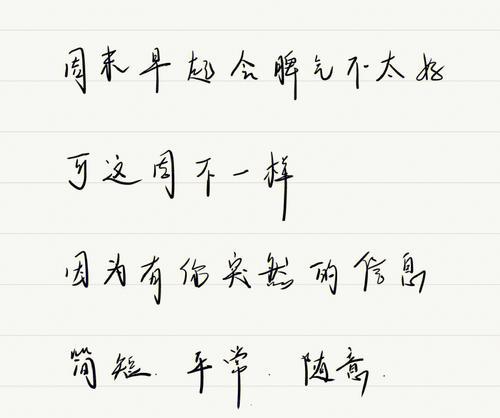 周末早起会脾气不太好
可这周不一样
因为有你突然的信息
简短.平常.随意.